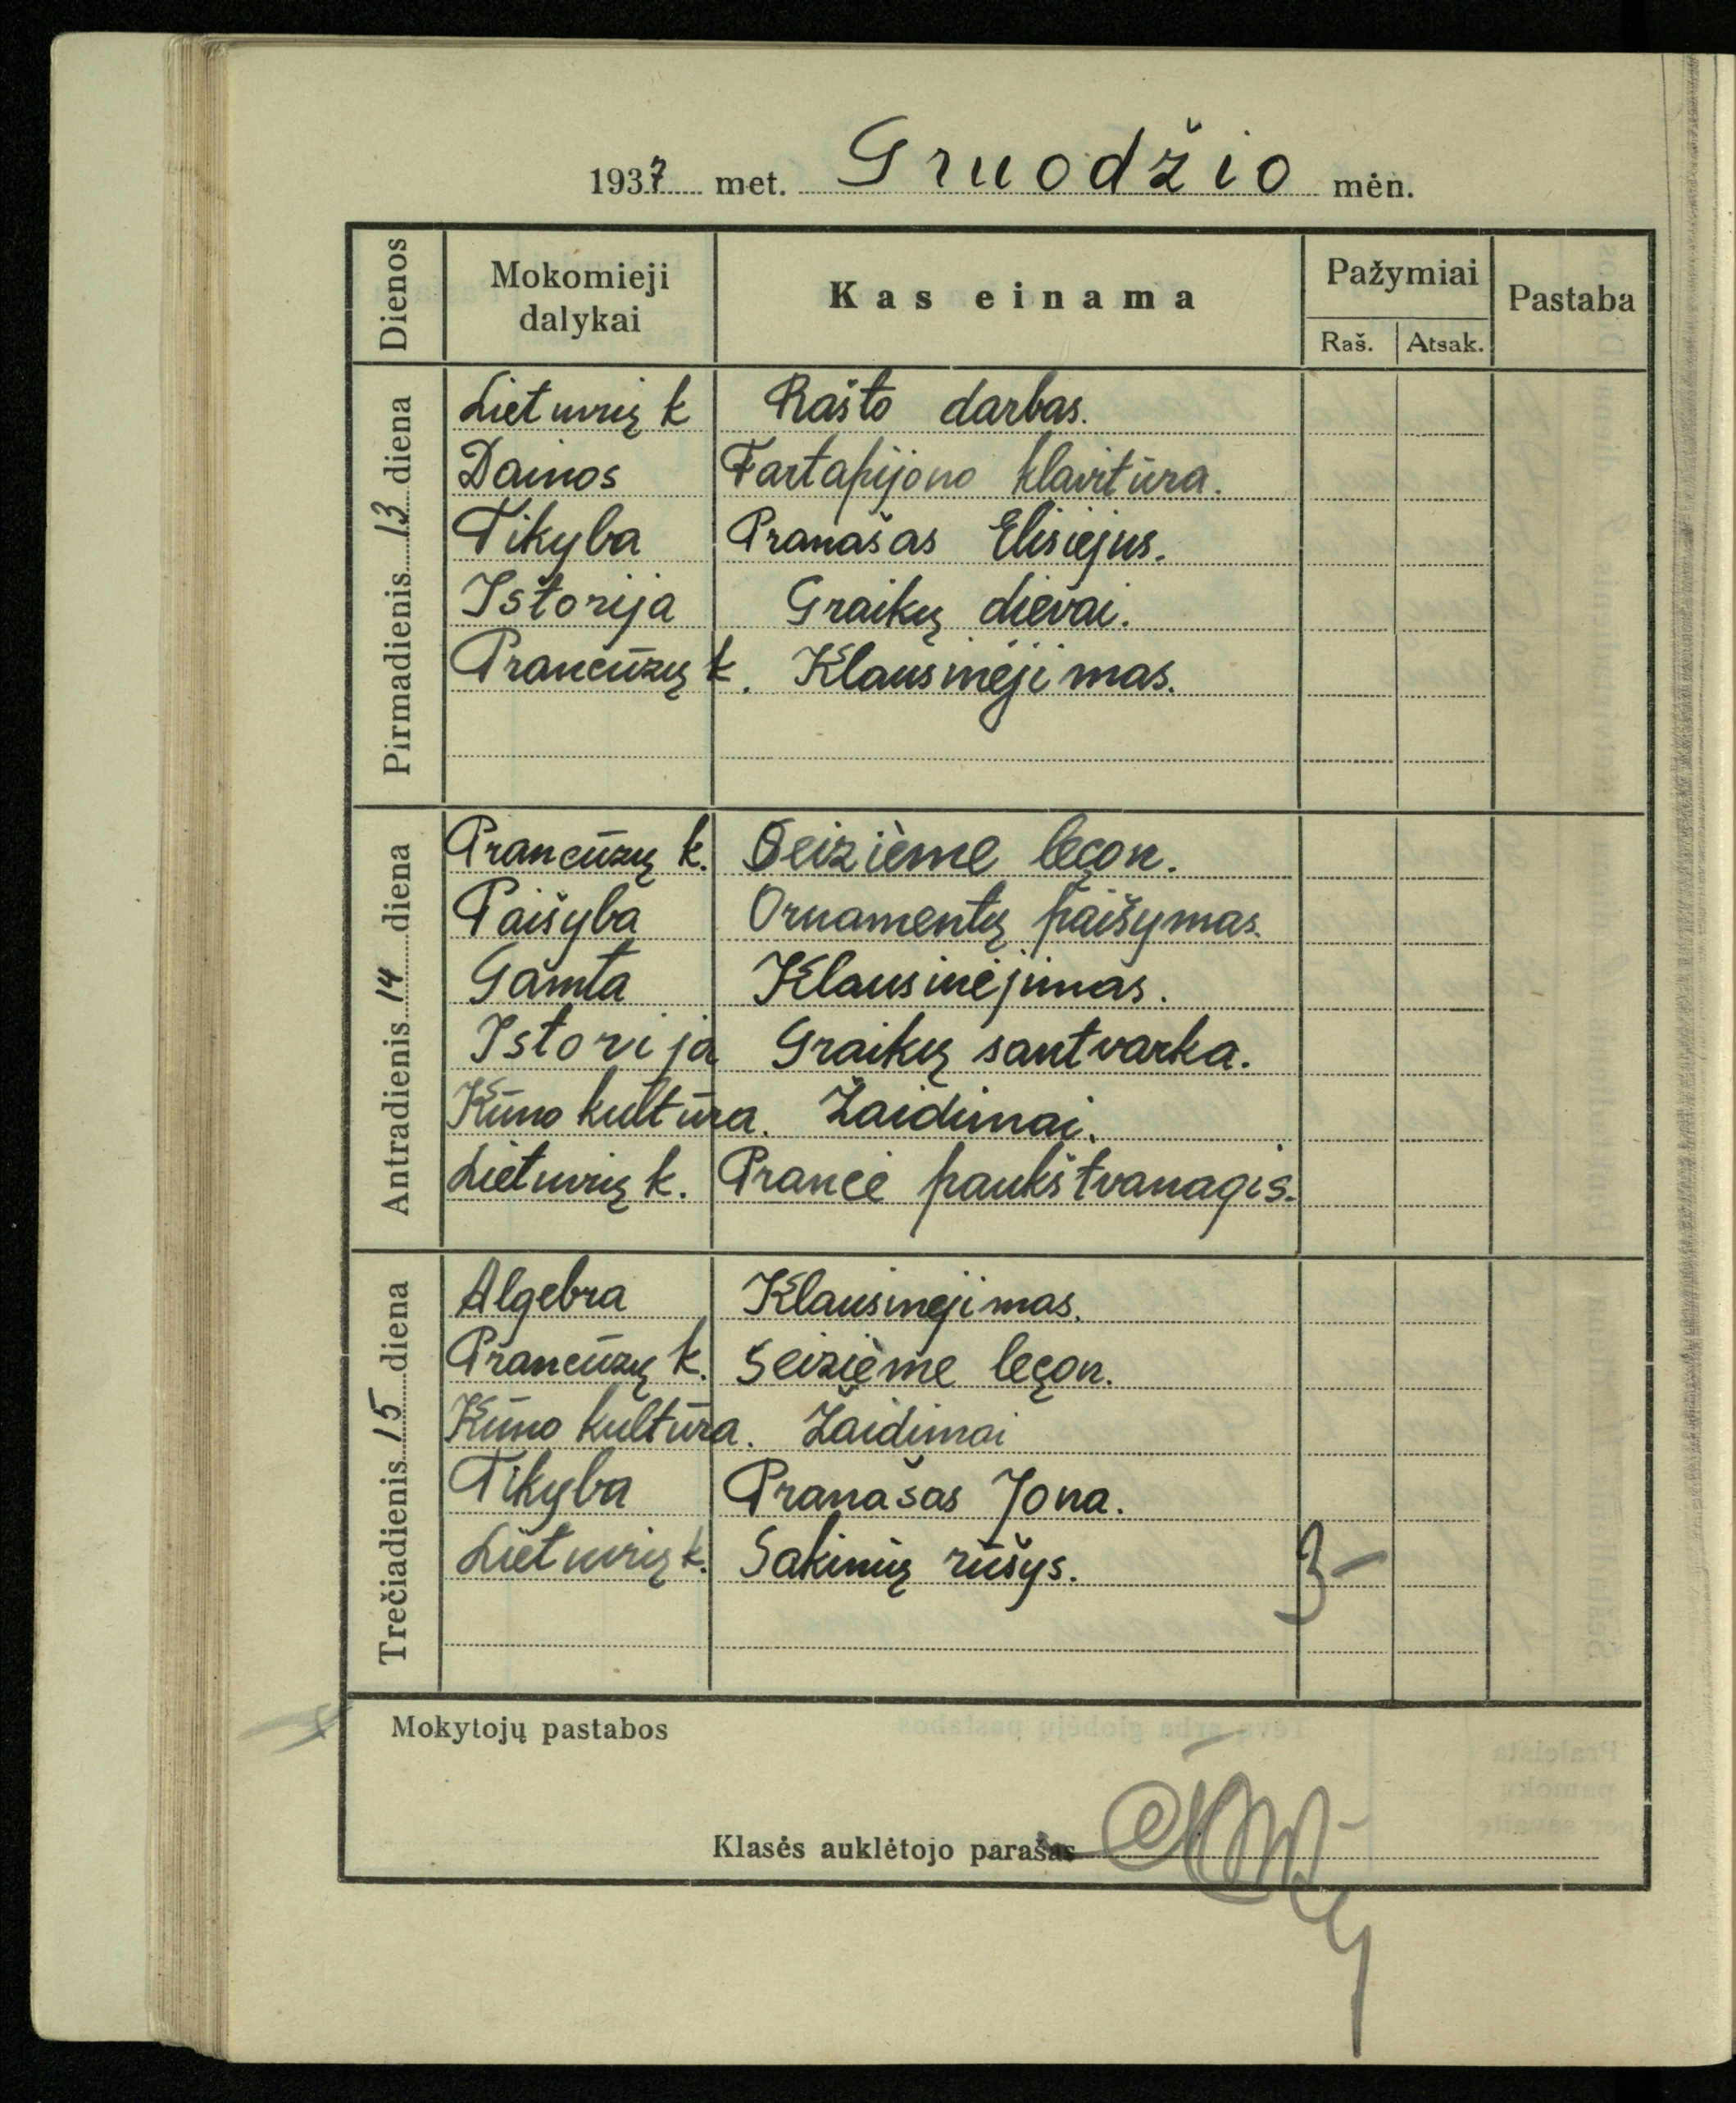 1937 met. Gruodžio mėn.
Dienos Mokomieji dalykai Kas einama Pažymiai Pastaba
Raš. Atsak.
Pirmadienis 13 diena
Lietuvių k Rašto darbas.
Dainos Fartapijono klavitūra.
Tikyba Pranašas Elisiejus.
Istorija Graikų dievai.
Prancūzų k. Klausinėjimas.
Antradienis 14 diena
Prancūzų k. Seizième leçon.
Paišyba Ornamentų paišymas.
Gamta Klausinėjimas.
Istorija Graikų santvarka.
Kūno kultūra. Žaidimai.
Lietuvių k. Prancė paukštvanagis.
Trečiadienis 15 diena
Algebra Klausinėjimas.
Prancūzų k. Seizième leçon.
Kūno kultūra. Žaidimai
Tikyba Pranašas Jona.
Lietuvių k. Sakinių rūšys. 3-
Mokytojų pastabos
Klasės auklėtojo parašas